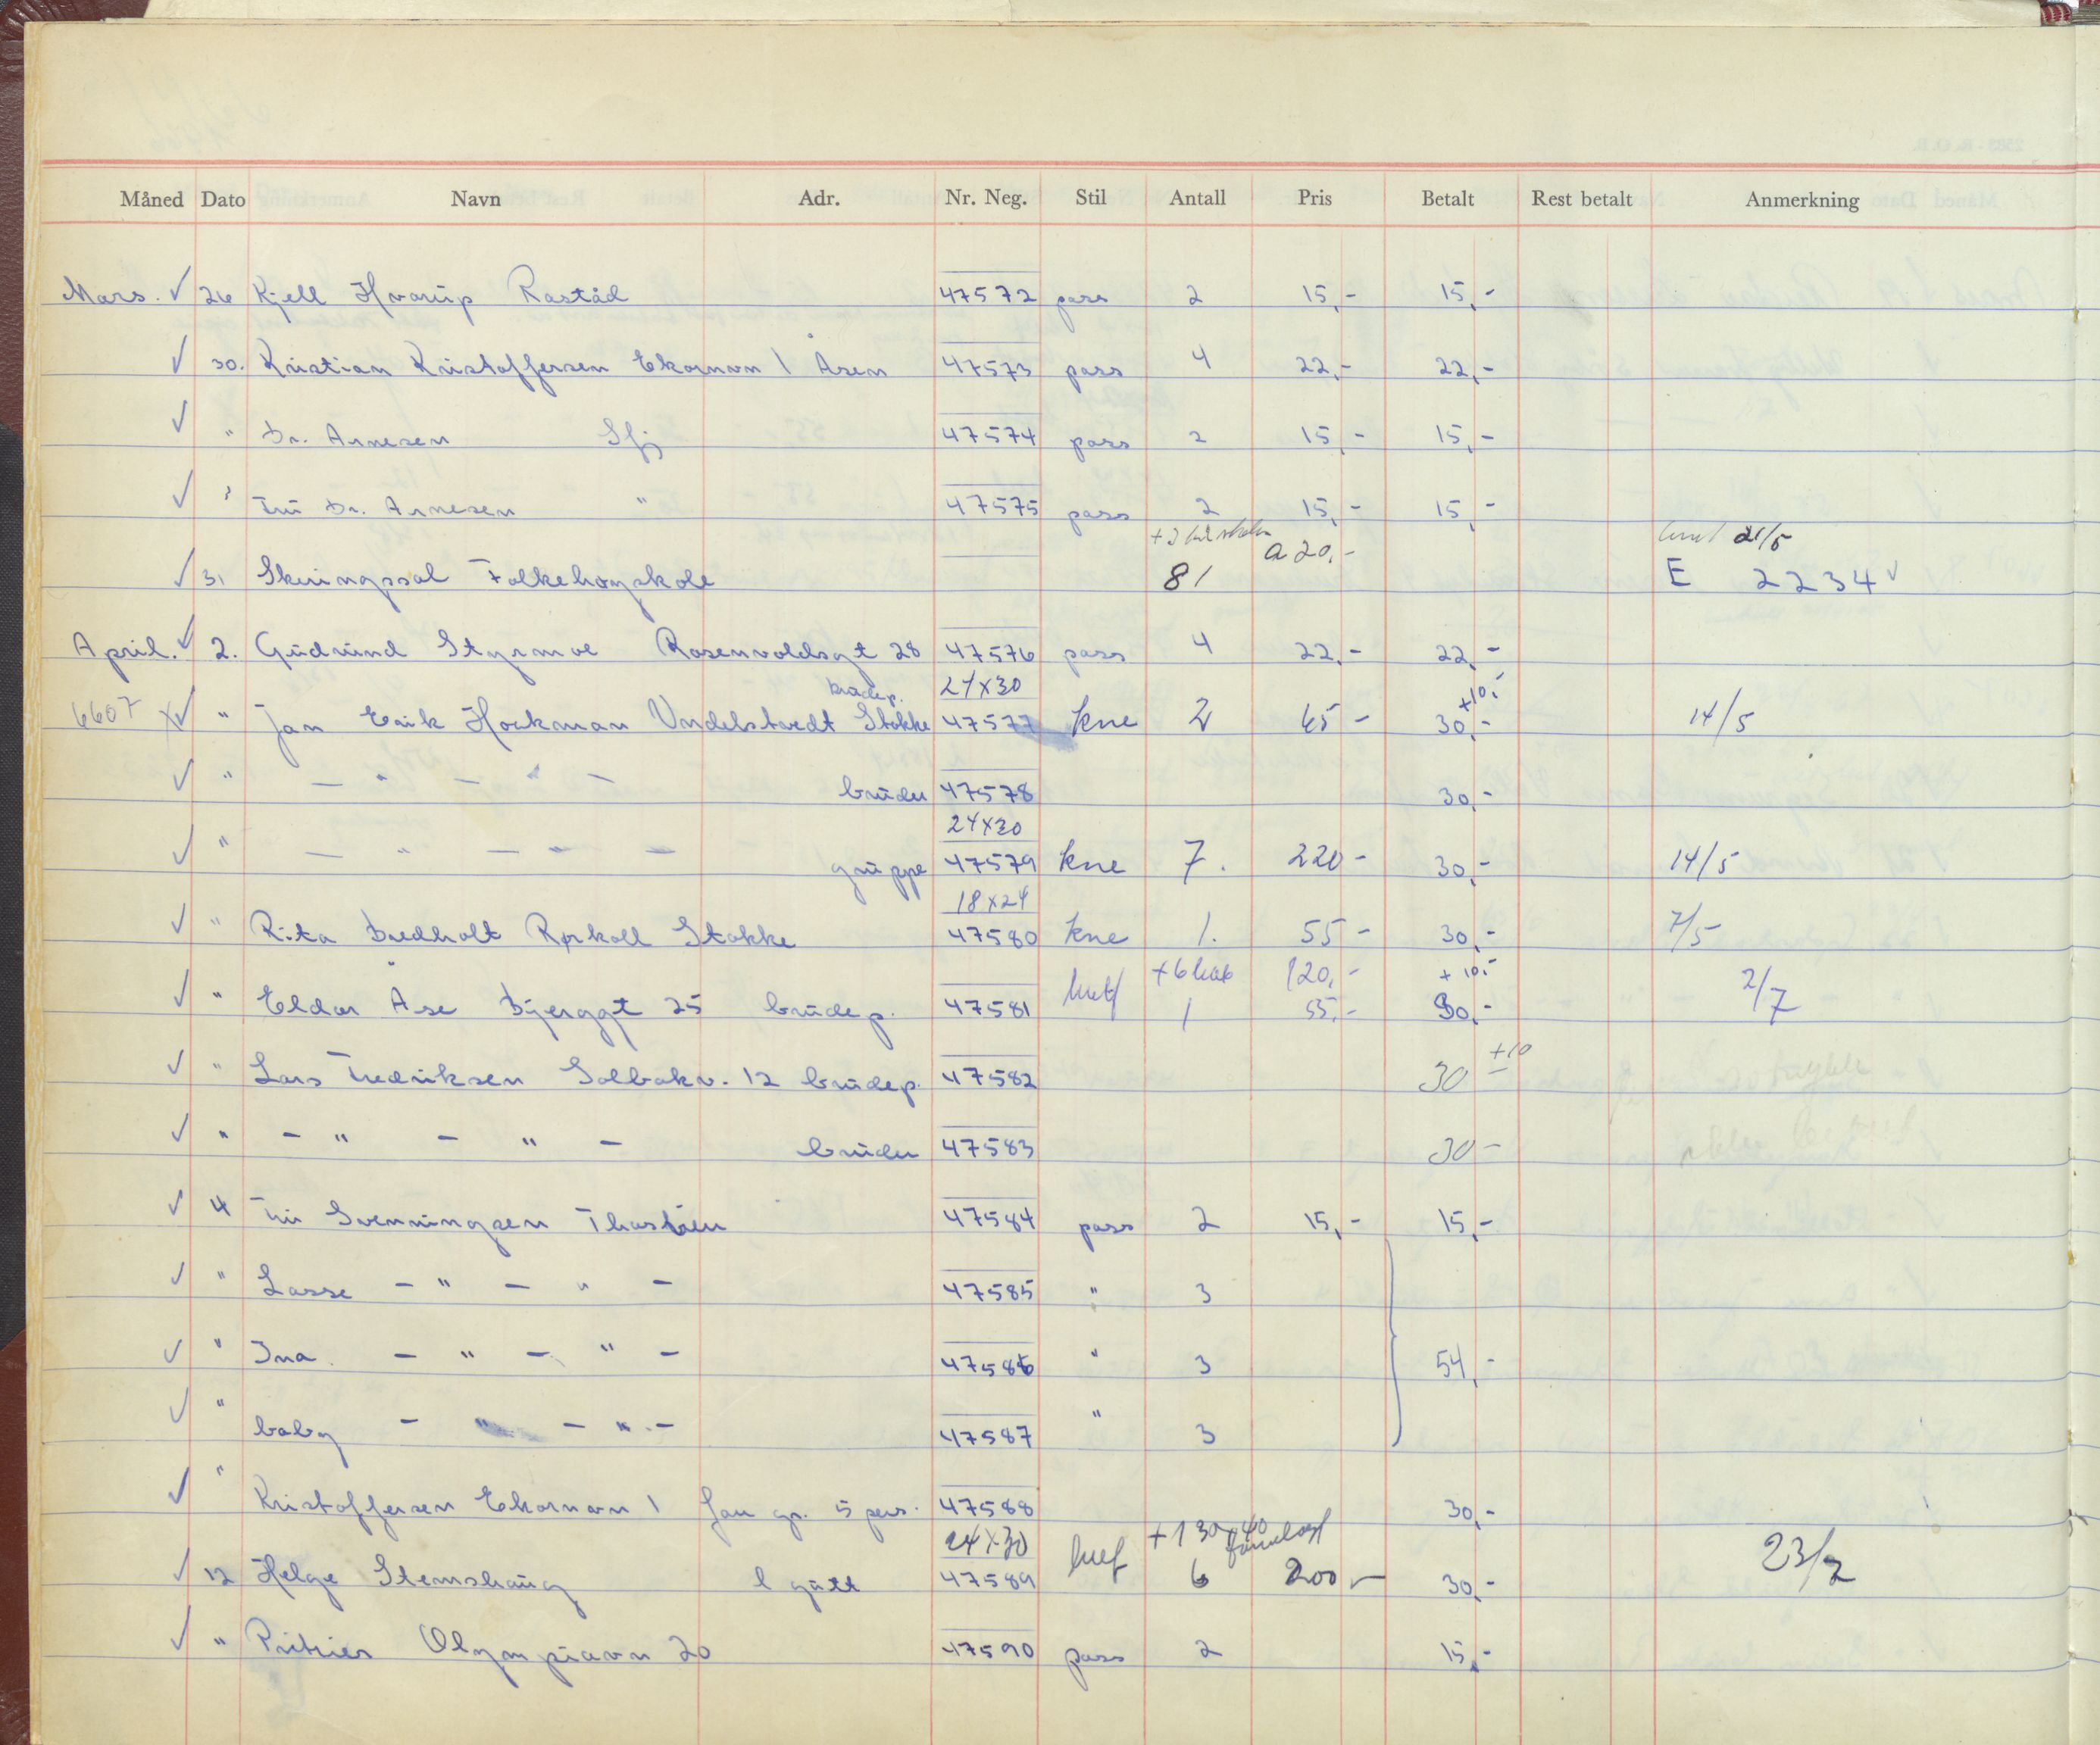 Måned Dato Navn Adr. Nr. Neg. Stil Antall Pris Betalt Rest betalt Anmerkning
Mars. ✓ 26 Kjell Hvarup Rastad 47572 pass 2 15,- 15,-
✓ 30. Kristian Kristoffersen Ekornvn 1 Åsen 47573 pass 4 22,- 22,-
✓ " Dr. Arnesen Sfj 47574 pass 2 15,- 15,-
✓ " Fru Dr. Arnesen " 47575 pass 2 15,- 15,-
+ 2 a 20,- 21/5
✓ 31 Skiringssal Folkehøgskole 81 E 2234 ✓
April. ✓ 2. Gudrund Styrmoe Rosenvoldsgt 28 47576 pass 4 22,- 22,-
brudep. 24x30 +10,-
6607 x✓ " Jan Erik Hockman Vndelstvedt Stokke 47577 kne 2 65- 30,- 14/5
✓ " - " - " - bruder 47578 30,-
24x30
✓ " - " - " - gruppe 47579 kne 7. 220- 30,- 14/5
18x24
✓ " Rita Bredholt Rørkoll Stokke 47580 kne 1. 55- 30,- 7/5
+6 kab 120,- +10,-
✓ " Eldar Åse Bjerggt 25 brudep. 47581 1 55,- 30,- 2/7
+10
✓ " Lars Fredriksen Solbakv. 12 brudep. 47582 30
✓ " - " - " - bruder 47583 30-
✓ 4 Fru Svenningsen Thorsøien 47584 pass 2 15,- 15,-
✓ " Lasse - " - " - 47585 " 3
✓ " Ina - " - " - 47586 " 3 54,-
✓ " baby - " - " - 47587 " 3
✓ " Kristoffersen Ekornvn 1 fam gr. 5 pers. 47588 30,-
24x30 +1 30x40
✓ 12 Helge Stemshaug 1 gutt 47589 6 200,- 30,- 23/7
✓ " Olympiavn 20 47590 pass 2 15,-